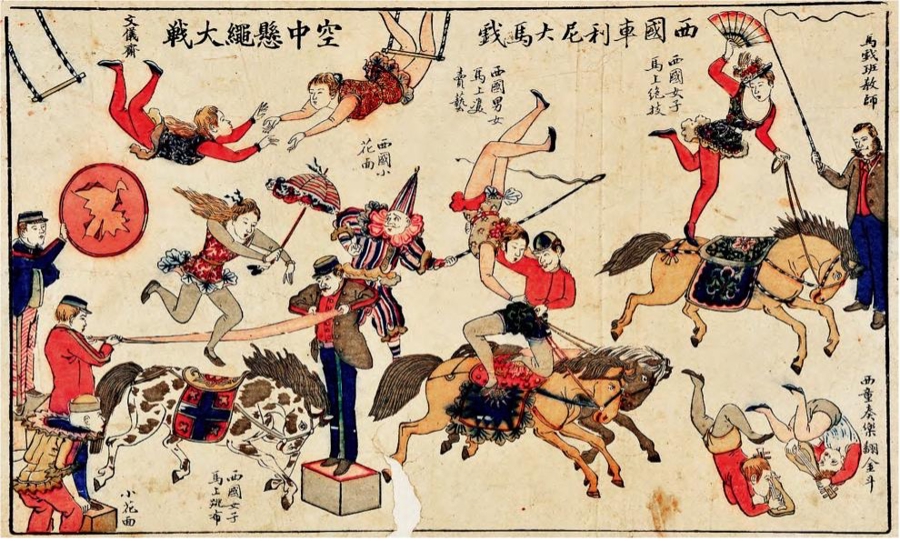 西國車利尼大馬戲
空中懸繩大戰
文儀齋
馬戲班教師
西國女子
馬上絕技
西國男女
馬上雙
賣藝
西國小
花面
西童奏樂翻金斗
西國女子
馬上跳布
小花面